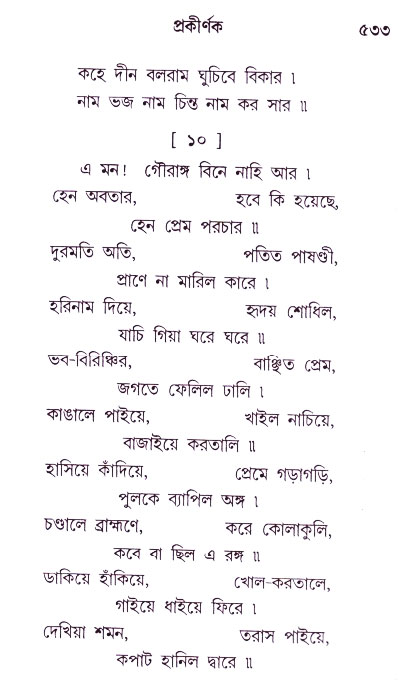 প্রকীর্ণক ৫৩৩
কহে দীন বলরাম ঘুচিবে বিকার ।
নাম ভজ নাম চিন্ত নাম কর সার ॥
[ ১০ ]
এ মন! গৌরাঙ্গ বিনে নাহি আর ।
হেন অবতার, হবে কি হয়েছে,
হেন প্রেম পরচার ॥
দুরমতি অতি, পতিত পাষণ্ডী,
প্রাণে না মারিল কারে ।
হরিনাম দিয়ে, হৃদয় শোধিল,
যাচি গিয়া ঘরে ঘরে ॥
ভব-বিরিঞ্চির, বাঞ্ছিত প্রেম,
জগতে ফেলিল ঢালি ।
কাঙালে পাইয়ে, খাইল নাচিয়ে,
বাজাইয়ে করতালি ॥
হাসিয়ে কাঁদিয়ে, প্রেমে গড়াগড়ি,
পুলকে ব্যাপিল অঙ্গ ।
চণ্ডালে ব্রাহ্মণে, করে কোলাকুলি,
কবে বা ছিল এ রঙ্গ ॥
ডাকিয়ে হাঁকিয়ে, খোল-করতালে,
গাইয়ে ধাইয়ে ফিরে ।
দেখিয়া শমন, তরাস পাইয়ে,
কপাট হানিল দ্বারে ॥